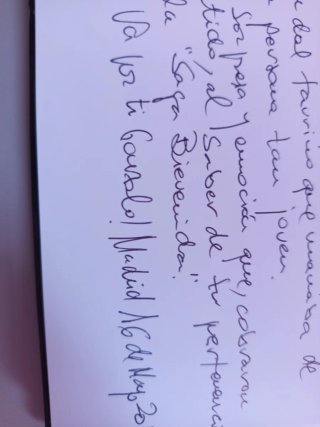 del taurino que emanaba de
persona tan joven.
Sorpresa y emoción que, cobraron
tido, al saber de tu pertenenci
la "Saga Bienvenida".
Va por ti Gonzalo! Madrid 16 de Mayo 20